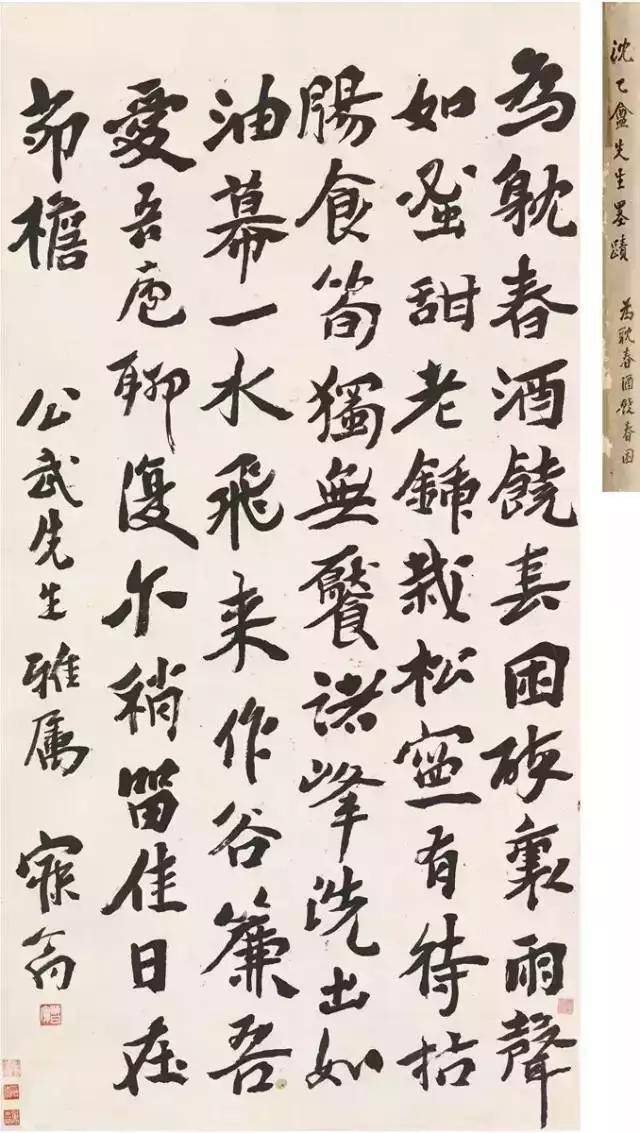 為躭春酒饒春困裏雨聲
如蜜甜老鍤栽松寧有待枯
腸食筍獨無饜諸峰洗出如
油幕一水飛来作谷簾吾
愛吾廬聊復尔稍留佳日在
茆檐 公武先生雅属 寐翁
沈乙盦先生墨蹟 為耽春酒饒春困